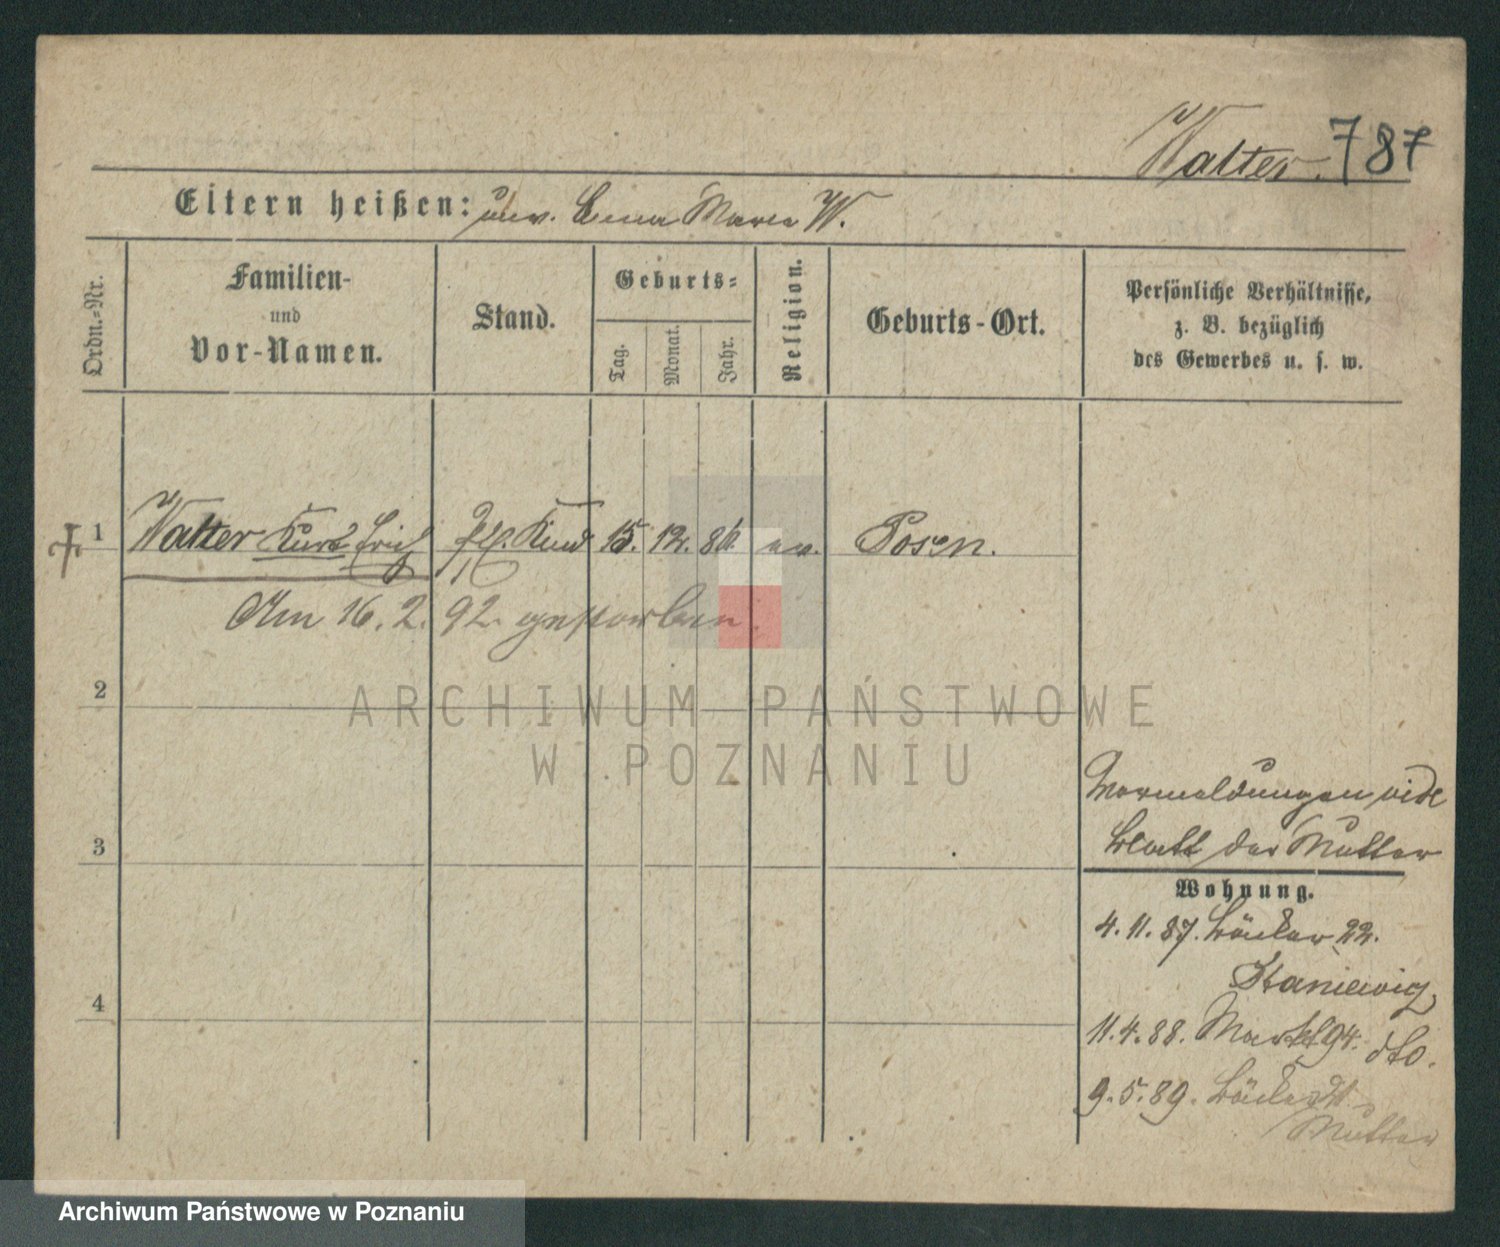 Walter. 787
Eltern heißen: unv. Anna Maria W.
Ordn.-Nr.
Familien-
und
Vor-Namen.
Stand.
Geburts-
Tag.
Monat.
Jahr.
Religion.
Geburts-Ort.
Persönliche Verhältnisse,
z. B. bezüglich
des Gewerbes u. s. w.
1 Walter Kurt Erich Kind 15. 12. 86. ev. Posen.
Am 16. 2. 92. gestorben.
2
ARCHIWUM PAŃSTWOWE
W POZNANIU
3
4
Vormeldungen vide
Blatt der Mutter
Wohnung.
4. 11. 87. Bäcker 22.
11. 4. 88. Markt 94. dto.
9. 5. 89. Bäcker
Mutter
Archiwum Państwowe w Poznaniu